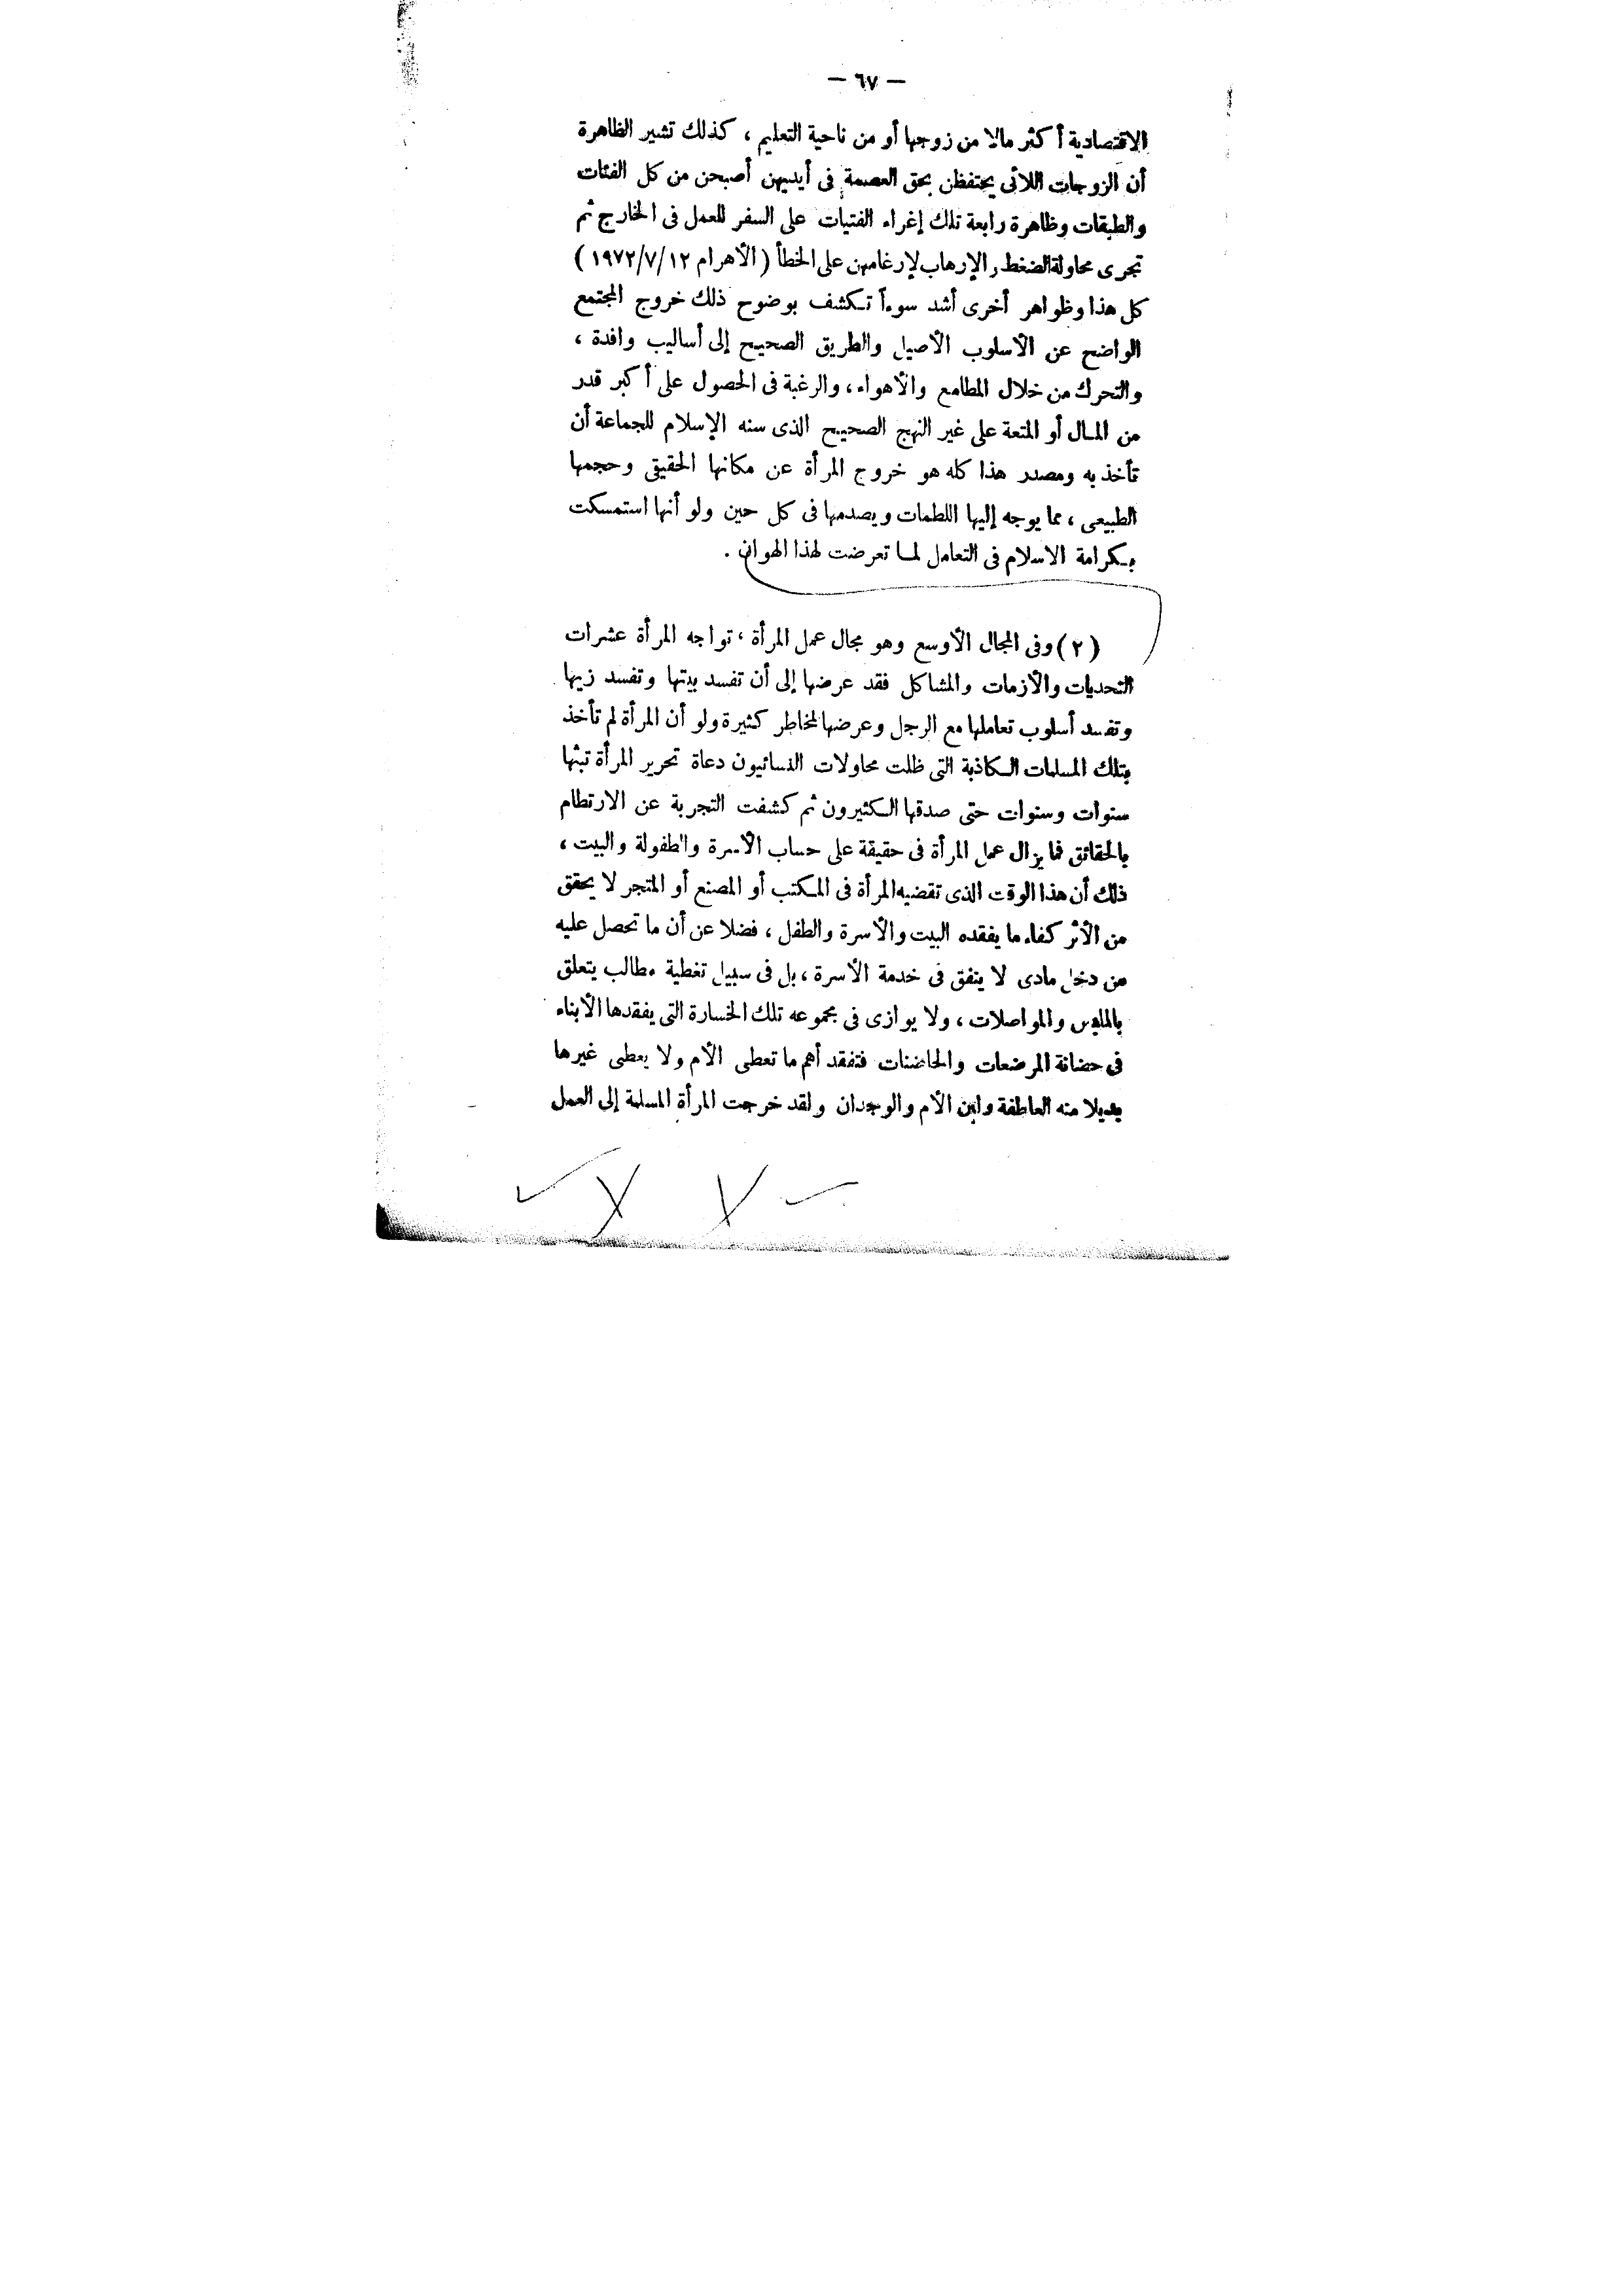 — ٦٧ —
الاقتصادية أكثر مالا من زوجها أو من ناحية التعليم ، كذلك تشير الظاهرة
أن الزوجات اللائى يحتفظن بحق العصمة فى أيديهن أصبحن من كل الفئات
والطبقات وظاهرة رابعة تلك إغراء الفتيات على السفر للعمل فى الخارج ثم
تجرى محاولة الضغط والإرهاب لإرغامهن على الخطأ ( الأهرام ١٩٧٢/٧/١٢ )
كل هذا وظواهر أخرى أشد سوءاً تكشف بوضوح ذلك خروج المجتمع
الواضح عن الأسلوب الأصيل والطريق الصحيح إلى أساليب وافدة ،
والتحرك من خلال المطامع والأهواء ، والرغبة فى الحصول على أكبر قدر
من المال أو المتعة على غير النهج الصحيح الذى سنه الإسلام للجماعة أن
تأخذ به ومصدر هذا كله هو خروج المرأة عن مكانها الحقيقى وحجمها
الطبيعى ، مما يوجه إليها اللطمات ويصدمها فى كل حين ولو أنها استمسكت
بكرامة الاسلام فى التعامل لما تعرضت لهذا الهوان .
( ٢ ) وفى المجال الأوسع وهو مجال عمل المرأة ، تواجه المرأة عشرات
التحديات والأزمات والمشاكل فقد عرضها إلى أن تفسد بيتها وتفسد زيها
وتفسد أسلوب تعاملها مع الرجل وعرضها لمخاطر كثيرة ولو أن المرأة لم تأخذ
بتلك المسلمات الكاذبة التى ظلت محاولات النسائيون دعاة تحرير المرأة تبثها
سنوات وسنوات حتى صدقها الكثيرون ثم كشفت التجربة عن الارتطام
بالحقائق فما يزال عمل المرأة فى حقيقة على حساب الأسرة والطفولة والبيت ،
ذلك أن هذا الوقت الذى تقضيه المرأة فى المكتب أو المصنع أو المتجر لا يحقق
من الأثر كفاء ما يفقده البيت والأسرة والطفل ، فضلا عن أن ما تحصل عليه
من دخل مادى لا ينفق فى خدمة الأسرة ، بل فى سبيل تغطية مطالب يتعلق
بالملبس والمواصلات ، ولا يوازى فى مجموعه تلك الخسارة التى يفقدها الأبناء
فى حضانة المرضعات والحاضنات فتفقد أهم ما تعطى الأم ولا يعطى غيرها
بديلا منه العاطفة ولبن الأم والوجدان ولقد خرجت المرأة المسلمة إلى العمل